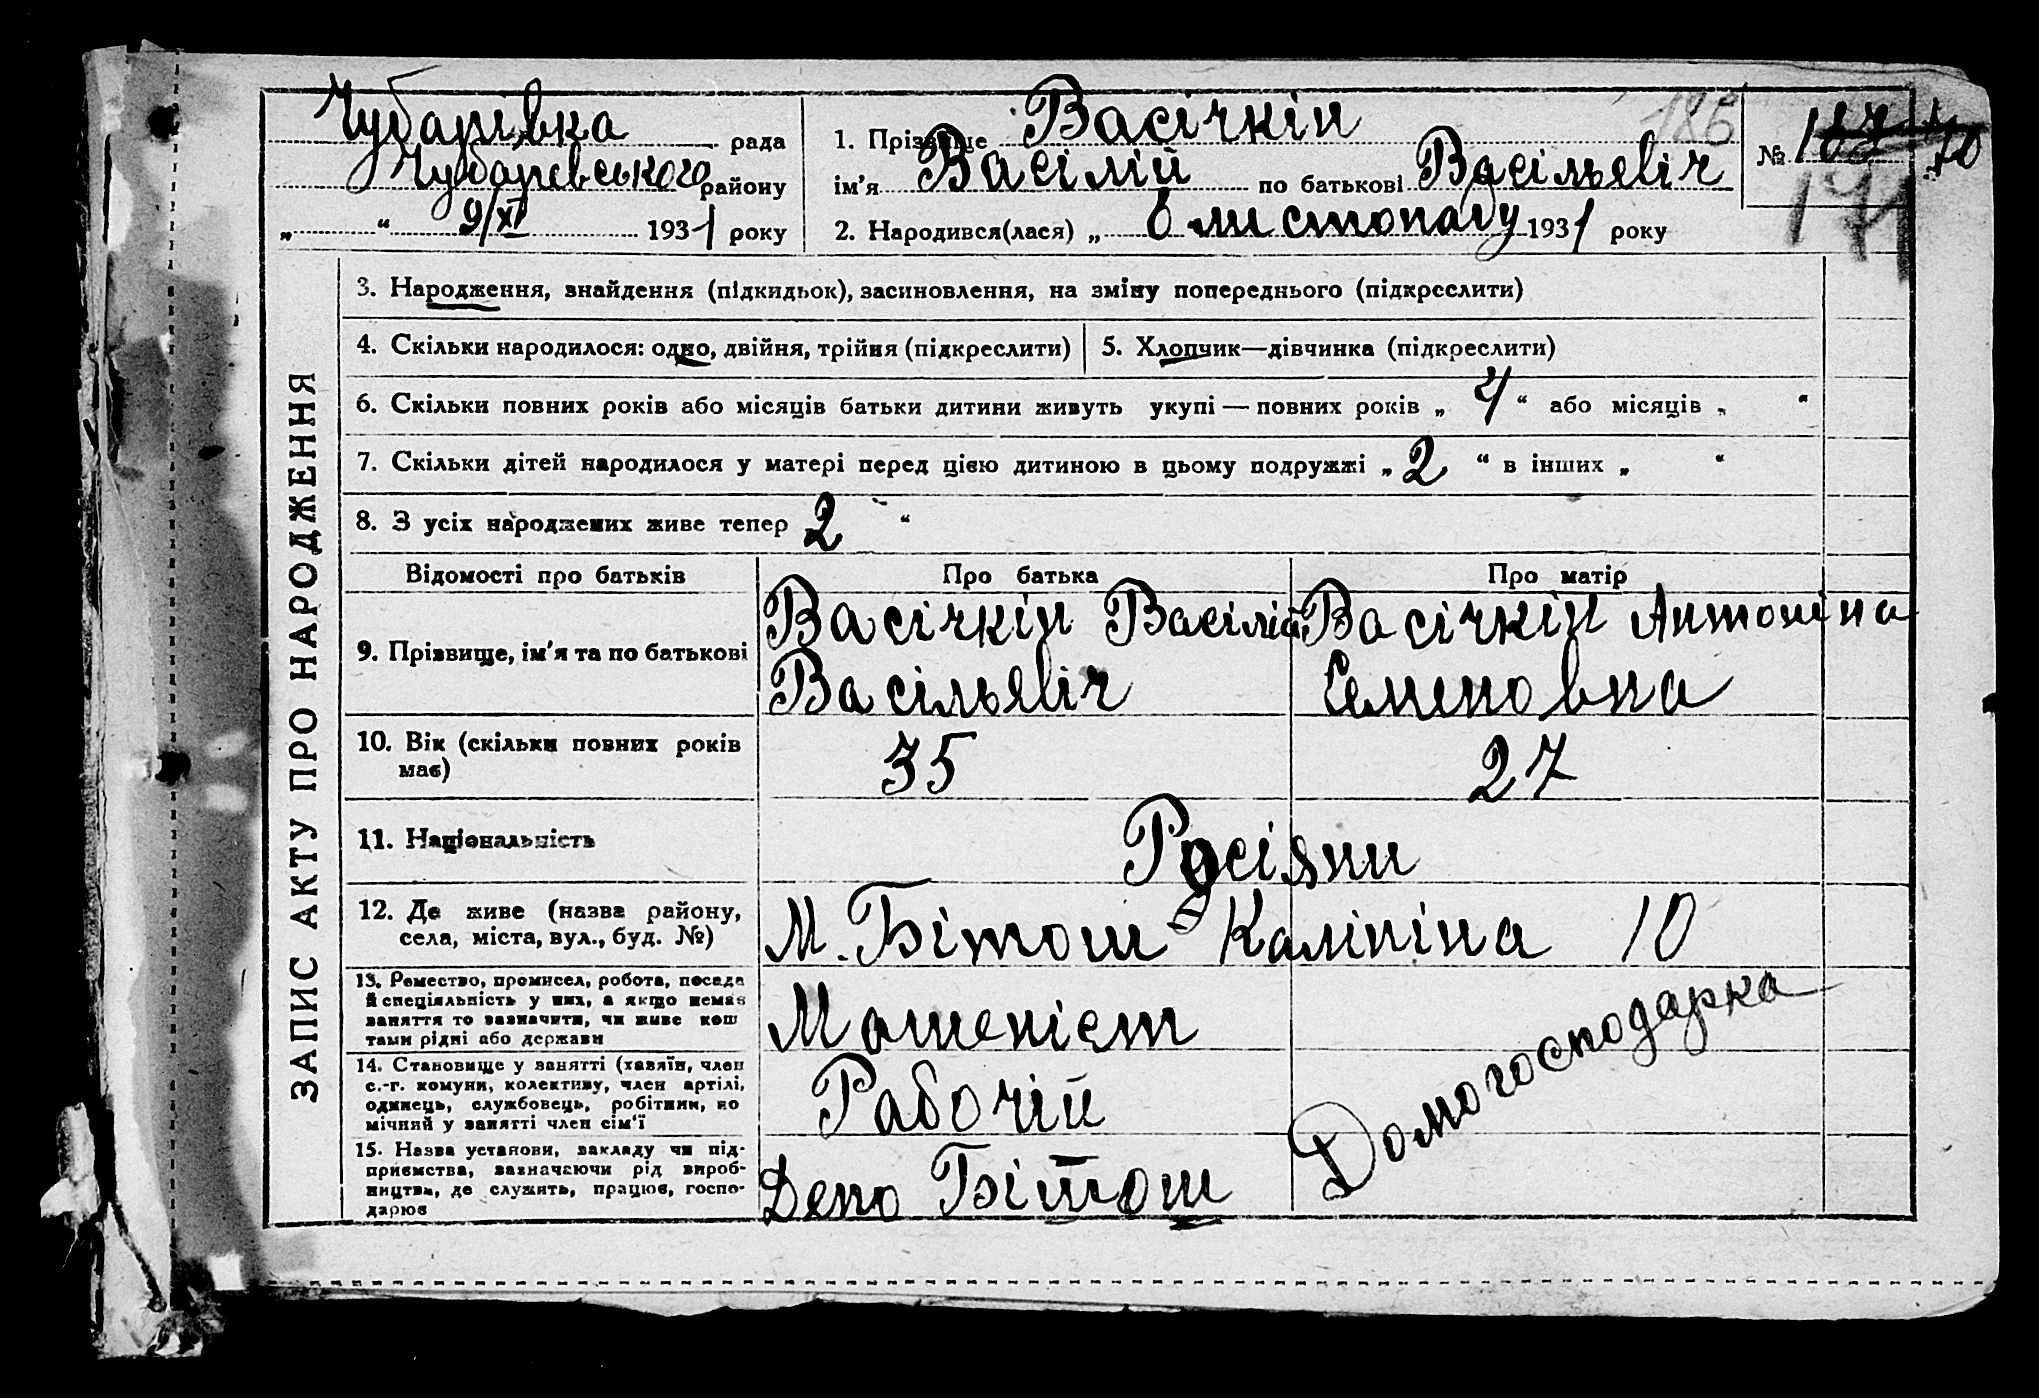 Чубарівка рада
Чубарівського району
„ “ 9/XI 1931 року
1. Прізвище Васічкін
ім'я Васілій по батькові Васільявіч
2. Народився(лася) „ 6 листопаду 1931 року
186
№ 187 170
171
ЗАПИС АКТУ ПРО НАРОДЖЕННЯ
3. Народження, знайдення (підкидьок), засиновлення, на зміну попереднього (підкреслити)
4. Скільки народилося: одно, двійня, трійня (підкреслити)
5. Хлопчик—дівчинка (підкреслити)
6. Скільки повних років або місяців батьки дитини живуть укупі — повних років „ 4 “ або місяців „ “
7. Скільки дітей народилося у матері перед цією дитиною в цьому подружжі „ 2 “ в інших „ “
8. З усіх народжених живе тепер 2 “
Відомості про батьків
Про батька
Про матір
9. Прізвище, ім'я та по батькові
Васічкін Васілій
Васільявіч
Васічкін Антоніна
Семеновна
10. Вік (скільки повних років
має)
35
27
11. Національність
Росіяни
12. Де живе (назва району,
села, міста, вул., буд. №)
М. Бітош Калініна 10
13. Ремество, промисел, робота, посада
й спеціяльність у них, а якщо немає
заняття то зазначити, чи живе кош
тами рідні або держави
Машеніст
14. Становище у занятті (хазяїн, член
с.-г. комуни, колективу, член артілі,
одинець, службовець, робітник, по
мічний у занятті член сім'ї
Рабочій
15. Назва установи, закладу чи під-
приємства, зазначаючи рід вироб-
ництва, де служить, працює, госпо-
дарює
Депо Бітош
Домогосподарка